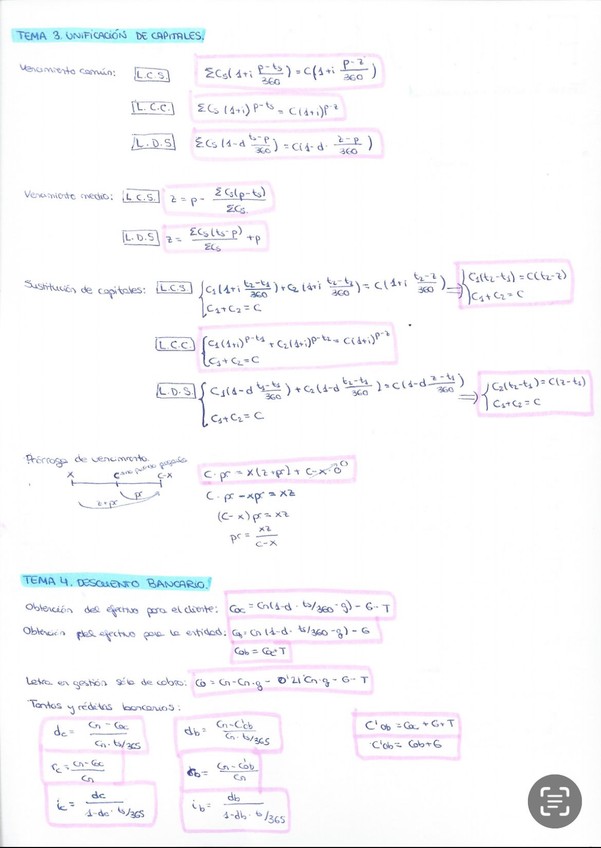 TEMA 3. UNIFICACIÓN DE CAPITALES.
Vencimiento común: L.C.S. ΣCs(1+i (p-ts)/360) = C(1+i (p-z)/360)
L.C.C. ΣCs(1+i)^(p-ts) = C(1+i)^(p-z)
L.D.S ΣCs(1-d (ts-p)/360) = C(1-d· (z-p)/360)
Vencimiento medio: L.C.S. z = p - ΣCs(p-ts)/ΣCs
L.D.S z = ΣCs(ts-p)/ΣCs + p
Sustitución de capitales: L.C.S { C1(1+i (t2-t1)/360) + C2(1+i (t2-t2)/360) = C(1+i (t2-z)/360) ⇒ { C1(t2-t1) = C(t2-z)
C1+C2 = C C1+C2 = C
L.C.C. { C1(1+i)^(p-t1) + C2(1+i)^(p-t2) = C(1+i)^(p-z)
C1+C2 = C
L.D.S { C1(1-d (t1-t1)/360) + C2(1-d (t2-t1)/360) = C(1-d (z-t1)/360) ⇒ { C2(t2-t1) = C(z-t1)
C1+C2 = C C1+C2 = C
Prórroga de vencimiento.
x C C-x
z+pr pr
C·pr = x(z+pr) + C-x·0
C·pr - xpr = xz
(C-x)pr = xz
pr = xz/(C-x)
TEMA 4. DESCUENTO BANCARIO.
Obtención del efectivo para el cliente: Coc = Cn(1-d·ts/360-g) - G-T
Obtención del efectivo para la entidad: Co = Cn(1-d·ts/360-g) - G
Cob = Coc+T
Letra en gestión sólo de cobro: Co = Cn-Cn·g - 0'21·Cn·g - G-T
Tantos y réditos bancarios:
dc = (Cn-Coc)/(Cn·ts/365) db = (Cn-C'ob)/(Cn·ts/365) C'ob = Coc+G+T
C'ob = Cob+G
rc = (Cn-Coc)/Cn rb = (Cn-C'ob)/Cn
ic = dc/(1-dc·ts/365) ib = db/(1-db·ts/365)